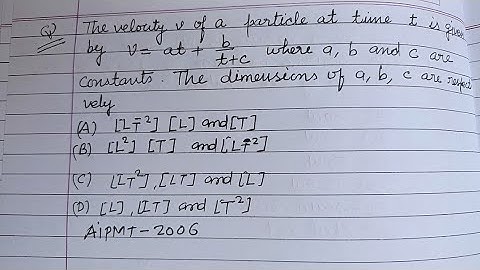 Q) The velocity v of a particle at time t is given
by v = at + b/(t+c) where a, b and c are
constants. The dimensions of a, b, c are respecti
vely
(A) [LT⁻²] [L] and [T]
(B) [L²] [T] and [LT⁻²]
(C) [LT²], [LT] and [L]
(D) [L], [LT] and [T²]
AiPMT - 2006